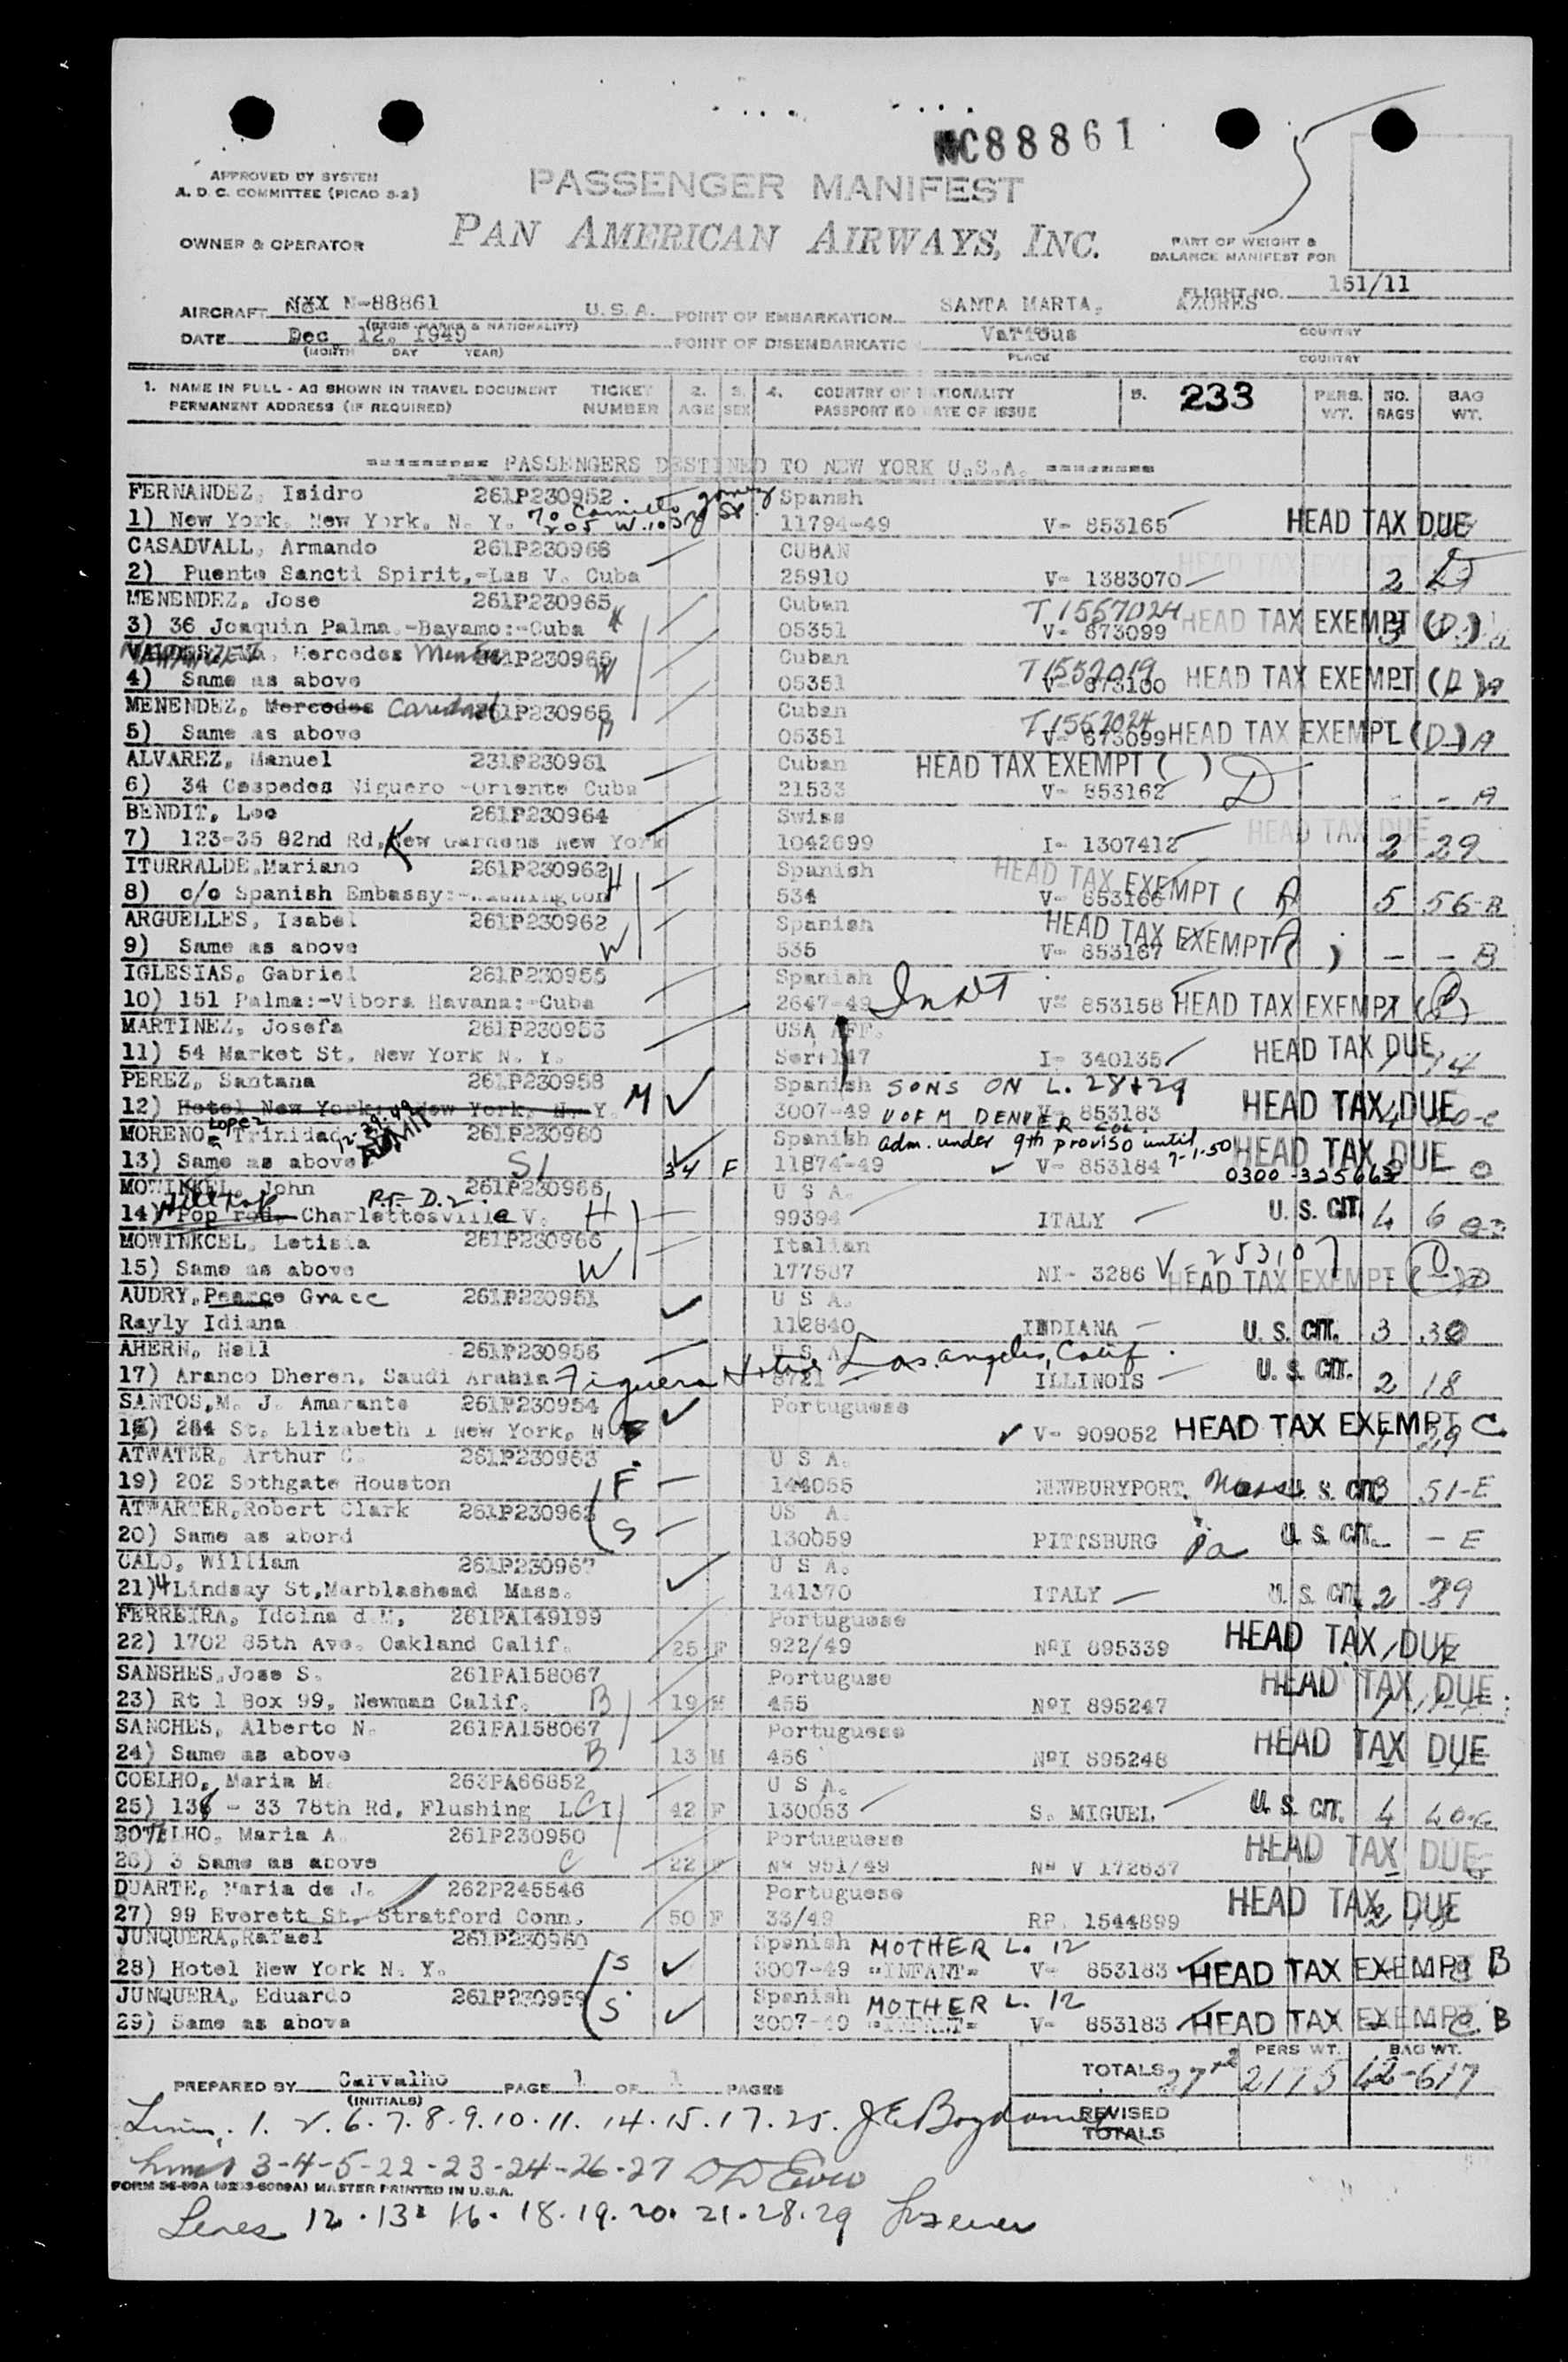 NC88861
APPROVED BY SYSTEM
A. D. C. COMMITTEE (PICAO S-2)
PASSENGER MANIFEST
OWNER & OPERATOR PAN AMERICAN AIRWAYS, INC.
PART OF WEIGHT &
BALANCE MANIFEST FOR
FLIGHT NO. 151/11
AIRCRAFT N-88861 U.S.A. POINT OF EMBARKATION SANTA MARTA, AZORES
(REGIS. MARKS & NATIONALITY) COUNTRY
DATE Dec 12, 1949 POINT OF DISEMBARKATIO Various
(MONTH DAY YEAR) PLACE COUNTRY
1. NAME IN FULL - AS SHOWN IN TRAVEL DOCUMENT TICKET 2. 3. 4. COUNTRY OF NATIONALITY 5. 233 PERS. NO. BAG
PERMANENT ADDRESS (IF REQUIRED) NUMBER AGE SEX PASSPORT NO DATE OF ISSUE WT. BAGS WT.
========= PASSENGERS DESTINED TO NEW YORK U.S.A. ========
FERNANDEZ, Isidro 261P230952 Spansh
1) New York, New York, N. Y. 205 W. 103rd St. 11794-49 V- 853165 HEAD TAX DUE
CASADVALL, Armando 261P230968 CUBAN
2) Puente Sancti Spirit,-Las V. Cuba 25910 V- 1383070 2
MENENDEZ, Jose 261P230965 Cuban T1557024
3) 36 Joaquin Palma.-Bayamo:-Cuba 05351 V- 673099 HEAD TAX EXEMPT (D)
Mercedes 261P230965 W Cuban T1557019
4) Same as above 05351 V- 673100 HEAD TAX EXEMPT
MENENDEZ, Mercedes Caridad 261P230965 Cuban T1557024
5) Same as above 05351 V- 673099 HEAD TAX EXEMPT (D) A
ALVAREZ, Manuel 231P230961 Cuban HEAD TAX EXEMPT ( ) D
6) 34 Cespedes Niguero -Oriente Cuba 21533 V- 853162 - - A
BENDIT, Leo 261P230964 Swiss HEAD TAX DUE
7) 123-35 82nd Rd, Kew Gardens New York 1042699 I- 1307412 2 29
ITURRALDE,Mariano 261P230962 H Spanish HEAD TAX EXEMPT ( A
8) c/o Spanish Embassy:-Washington 534 V- 853166 5 56-B
ARGUELLES, Isabel 261P230962 Spanish HEAD TAX EXEMPT (A )
9) Same as above W 535 V- 853167 - - B
IGLESIAS, Gabriel 261P230955 Spanish
10) 151 Palma:-Vibora Havana:-Cuba 2647-49 V- 853158 HEAD TAX EXEMPT
MARTINEZ, Josefa 261P230953 USA AFF.
11) 54 Market St. New York N. Y. I- 340135 HEAD TAX DUE 14
PEREZ, Santana 261P230958 M Spanish SONS ON L. 28+29
12) Hotel New York, New York, N. Y. 3007-49 V- 853183 HEAD TAX DUE
MORENO, Lopez Trinidad 261P230960 Spanish U OF M DENVER COL. adm. under 9th proviso until 7-1-50 HEAD TAX DUE
13) Same as above 12-29-49 ADMIT S1 34 F 11874-49 V- 853184
MOWINKEL, John R.F.D.2. 261P230966 U S A.
14) Hilltop Charlettosville V. H 99394 ITALY U.S. CIT. 4 6
MOWINKCEL, Letisia 261P230966 Italian V-253107
15) Same as above W 177587 NI- 3286 HEAD TAX EXEMPT
AUDRY, Pearce Grace 261P230951 U S A.
Rayly Idiana 112840 INDIANA U.S. CIT. 3 30
AHERN, Neil 261P230956 U S A
17) Aramco Dheren, Saudi Arabia Figuera Hotel Los Angeles, Calif. 8721 ILLINOIS U.S. CIT. 2 18
SANTOS,M. J. Amarante 261P230954 Portuguese
18) 284 St. Elizabeth I New York, N V- 909052 HEAD TAX EXEMPT C
ATWATER, Arthur C. 261P230963 U S A.
19) 202 Sothgate Houston F 144055 NEWBURYPORT, Mass U.S. CIT. 3 51-E
ATWARTER,Robert Clark 261P230963 US A.
20) Same as abord S 130059 PITTSBURG Pa U.S. CIT. - E
CALO, William 261P230967 U S A.
21) 4 Lindsay St,Marblashead Mass. 141370 ITALY U.S. CIT. 2 39
FERREIRA, Idoina d M, 261PA149199 Portuguese
22) 1702 85th Ave. Oakland Calif. 25 F 922/49 NºI 895339 HEAD TAX DUE
SANSHES,Jose S. 261PA158067 Portuguse
23) Rt 1 Box 99, Newman Calif. B 19 M 455 NºI 895247 HEAD TAX DUE
SANCHES, Alberto N. 261PA158067 Portuguese
24) Same as above B 13 M 456 NºI 895248 HEAD TAX DUE
COELHO, Maria M. 263PA66852 U S A.
25) 138 - 33 78th Rd, Flushing L I 42 F 130053 S. MIGUEL U.S. CIT. 4
BOTELHO, Maria A. 261P230950 Portuguese
26) 3 Same as above C 22 F Nº 951/49 Nº V 172637 HEAD TAX DUE
DUARTE, Maria de J. 262P245546 Portuguese
27) 99 Everett St. Stratford Conn. 50 F 33/49 RP. 1544899 HEAD TAX DUE
JUNQUERA,Rafael 261P230960 Spanish MOTHER L. 12
28) Hotel New York N. Y. S 3007-49 "INFANT" V- 853183 HEAD TAX EXEMPT B
JUNQUERA, Eduardo 261P230959 Spanish MOTHER L. 12
29) Same as above S 3007-49 "INFANT" V- 853183 HEAD TAX EXEMPT B
PREPARED BY Carvalho PAGE 1 OF 1 PAGES TOTALS 27+2 PERS WT. 2175 BAG WT. 42-617
(INITIALS)
REVISED
TOTALS
Lines 1. 2. 6. 7. 8. 9. 10. 11. 14. 15. 17. 25.
Lines 3-4-5-22-23-24-26-27
FORM 36-89A MASTER PRINTED IN U.S.A.
Lines 12. 13. 16. 18. 19. 20. 21. 28. 29